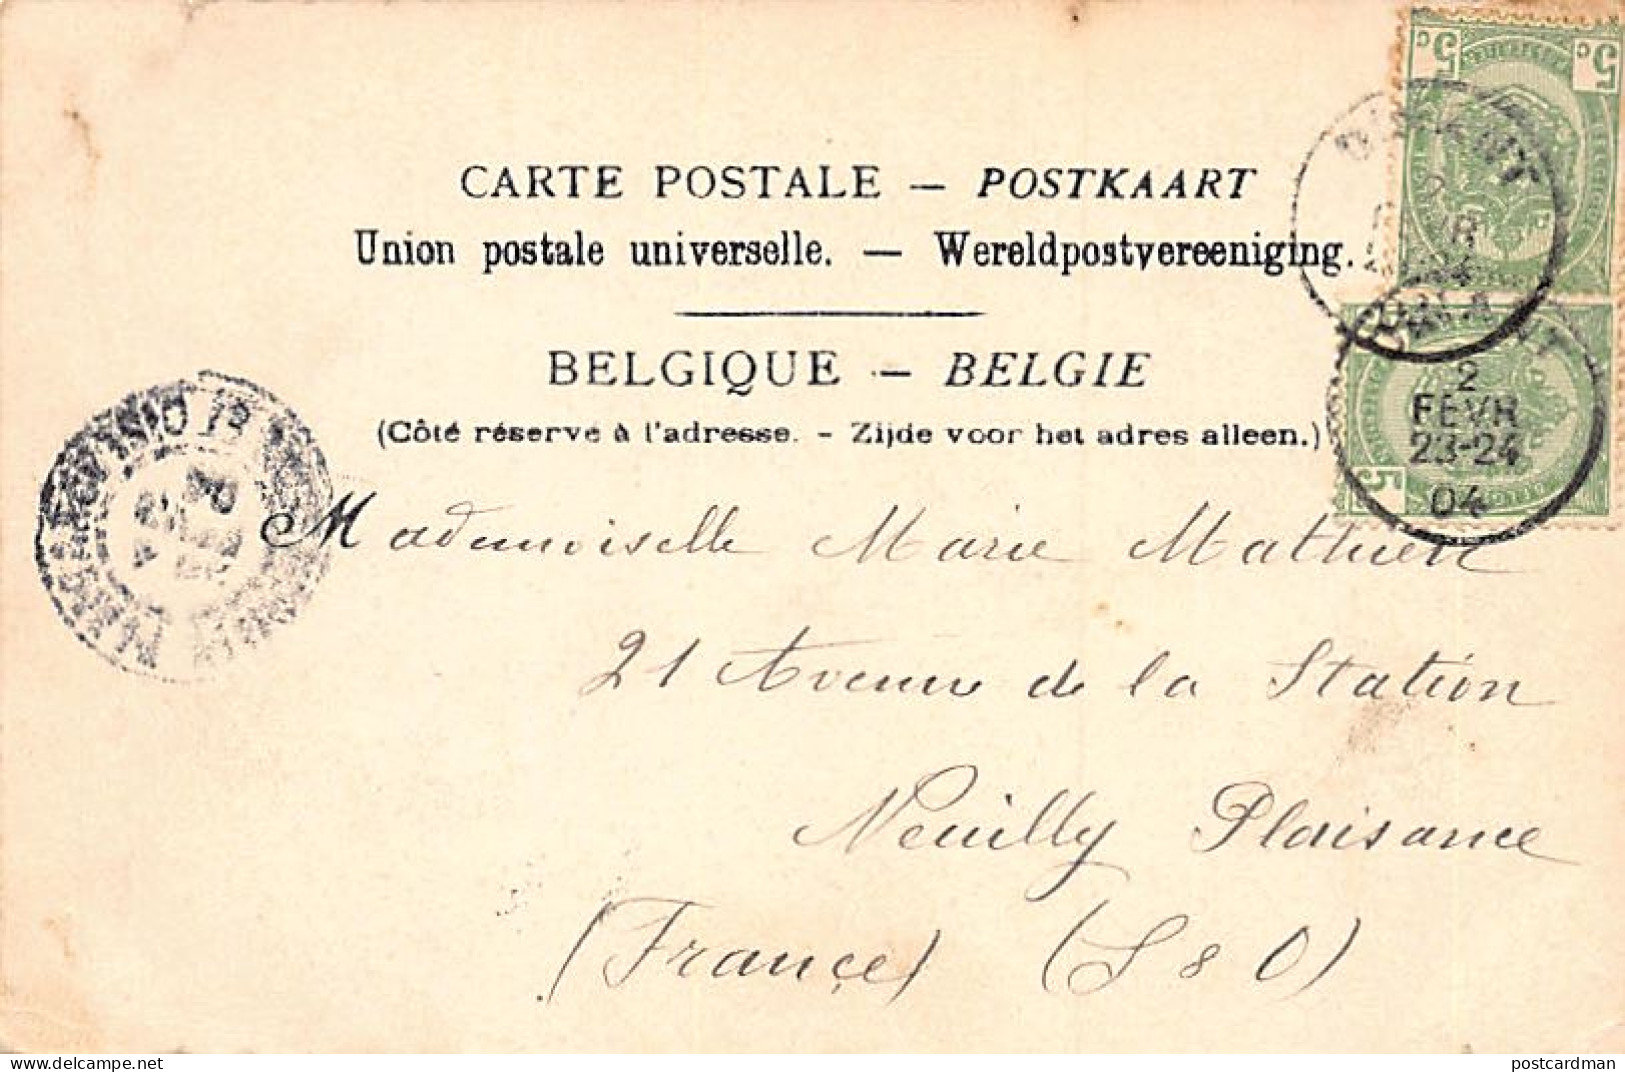 CARTE POSTALE — POSTKAART
Union postale universelle. — Wereldpostvereeniging.
BELGIQUE — BELGIE
(Côté réservé à l'adresse. - Zijde voor het adres alleen.)
5c 5c
DINANT
2
FEVR
23-24
04
5
Mademoiselle Marie Mathieu
21 Avenue de la Station
Neuilly Plaisance
(France) (S & O)
https://www.delcampe.net
postcardman